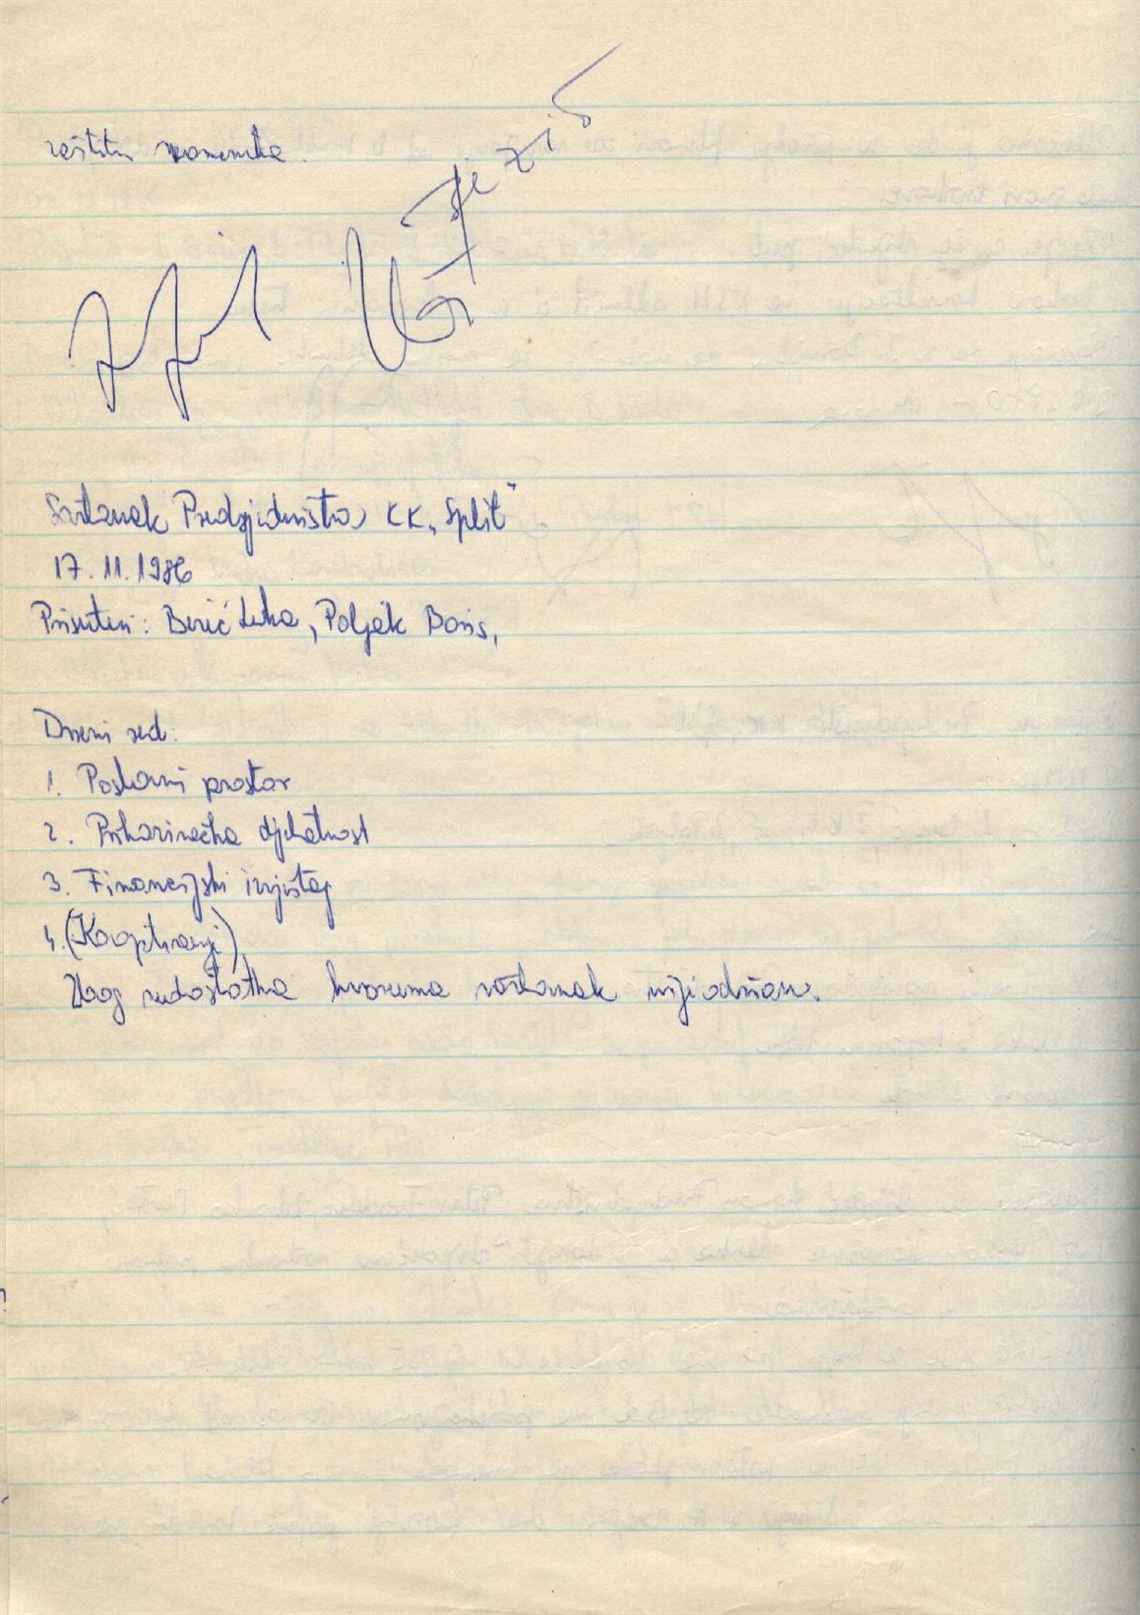 zaštitu spomenika.
Sastanak Predsjedništva KK „Split"
17.11.1986
Prisutni: Berić Luka, Poljak Boris,
Dnevni red:
1. Poslovni prostor
2. Prikazivačka djelatnost
3. Financijski izvještaj
4. (Kooptiranje)
Zbog nedostatka kvoruma sastanak nije održan.